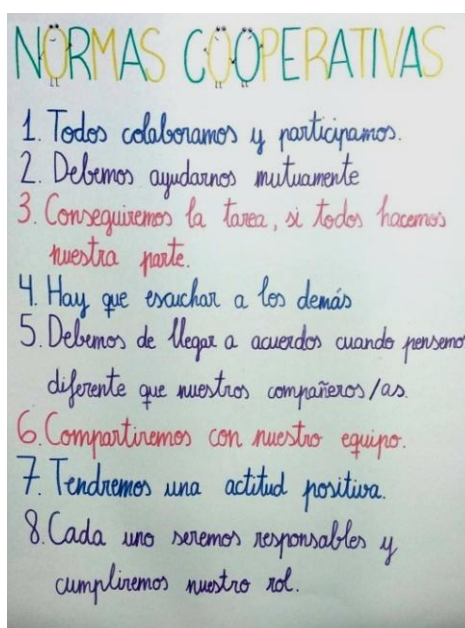 NORMAS COOPERATIVAS
1. Todos colaboramos y participamos.
2. Debemos ayudarnos mutuamente
3. Conseguiremos la tarea, si todos hacemos
nuestra parte.
4. Hay que escuchar a los demás
5. Debemos de llegar a acuerdos cuando pensemo
diferente que nuestros compañeros/as.
6. Compartiremos con nuestro equipo.
7. Tendremos una actitud positiva.
8. Cada uno seremos responsables y
cumpliremos nuestro rol.